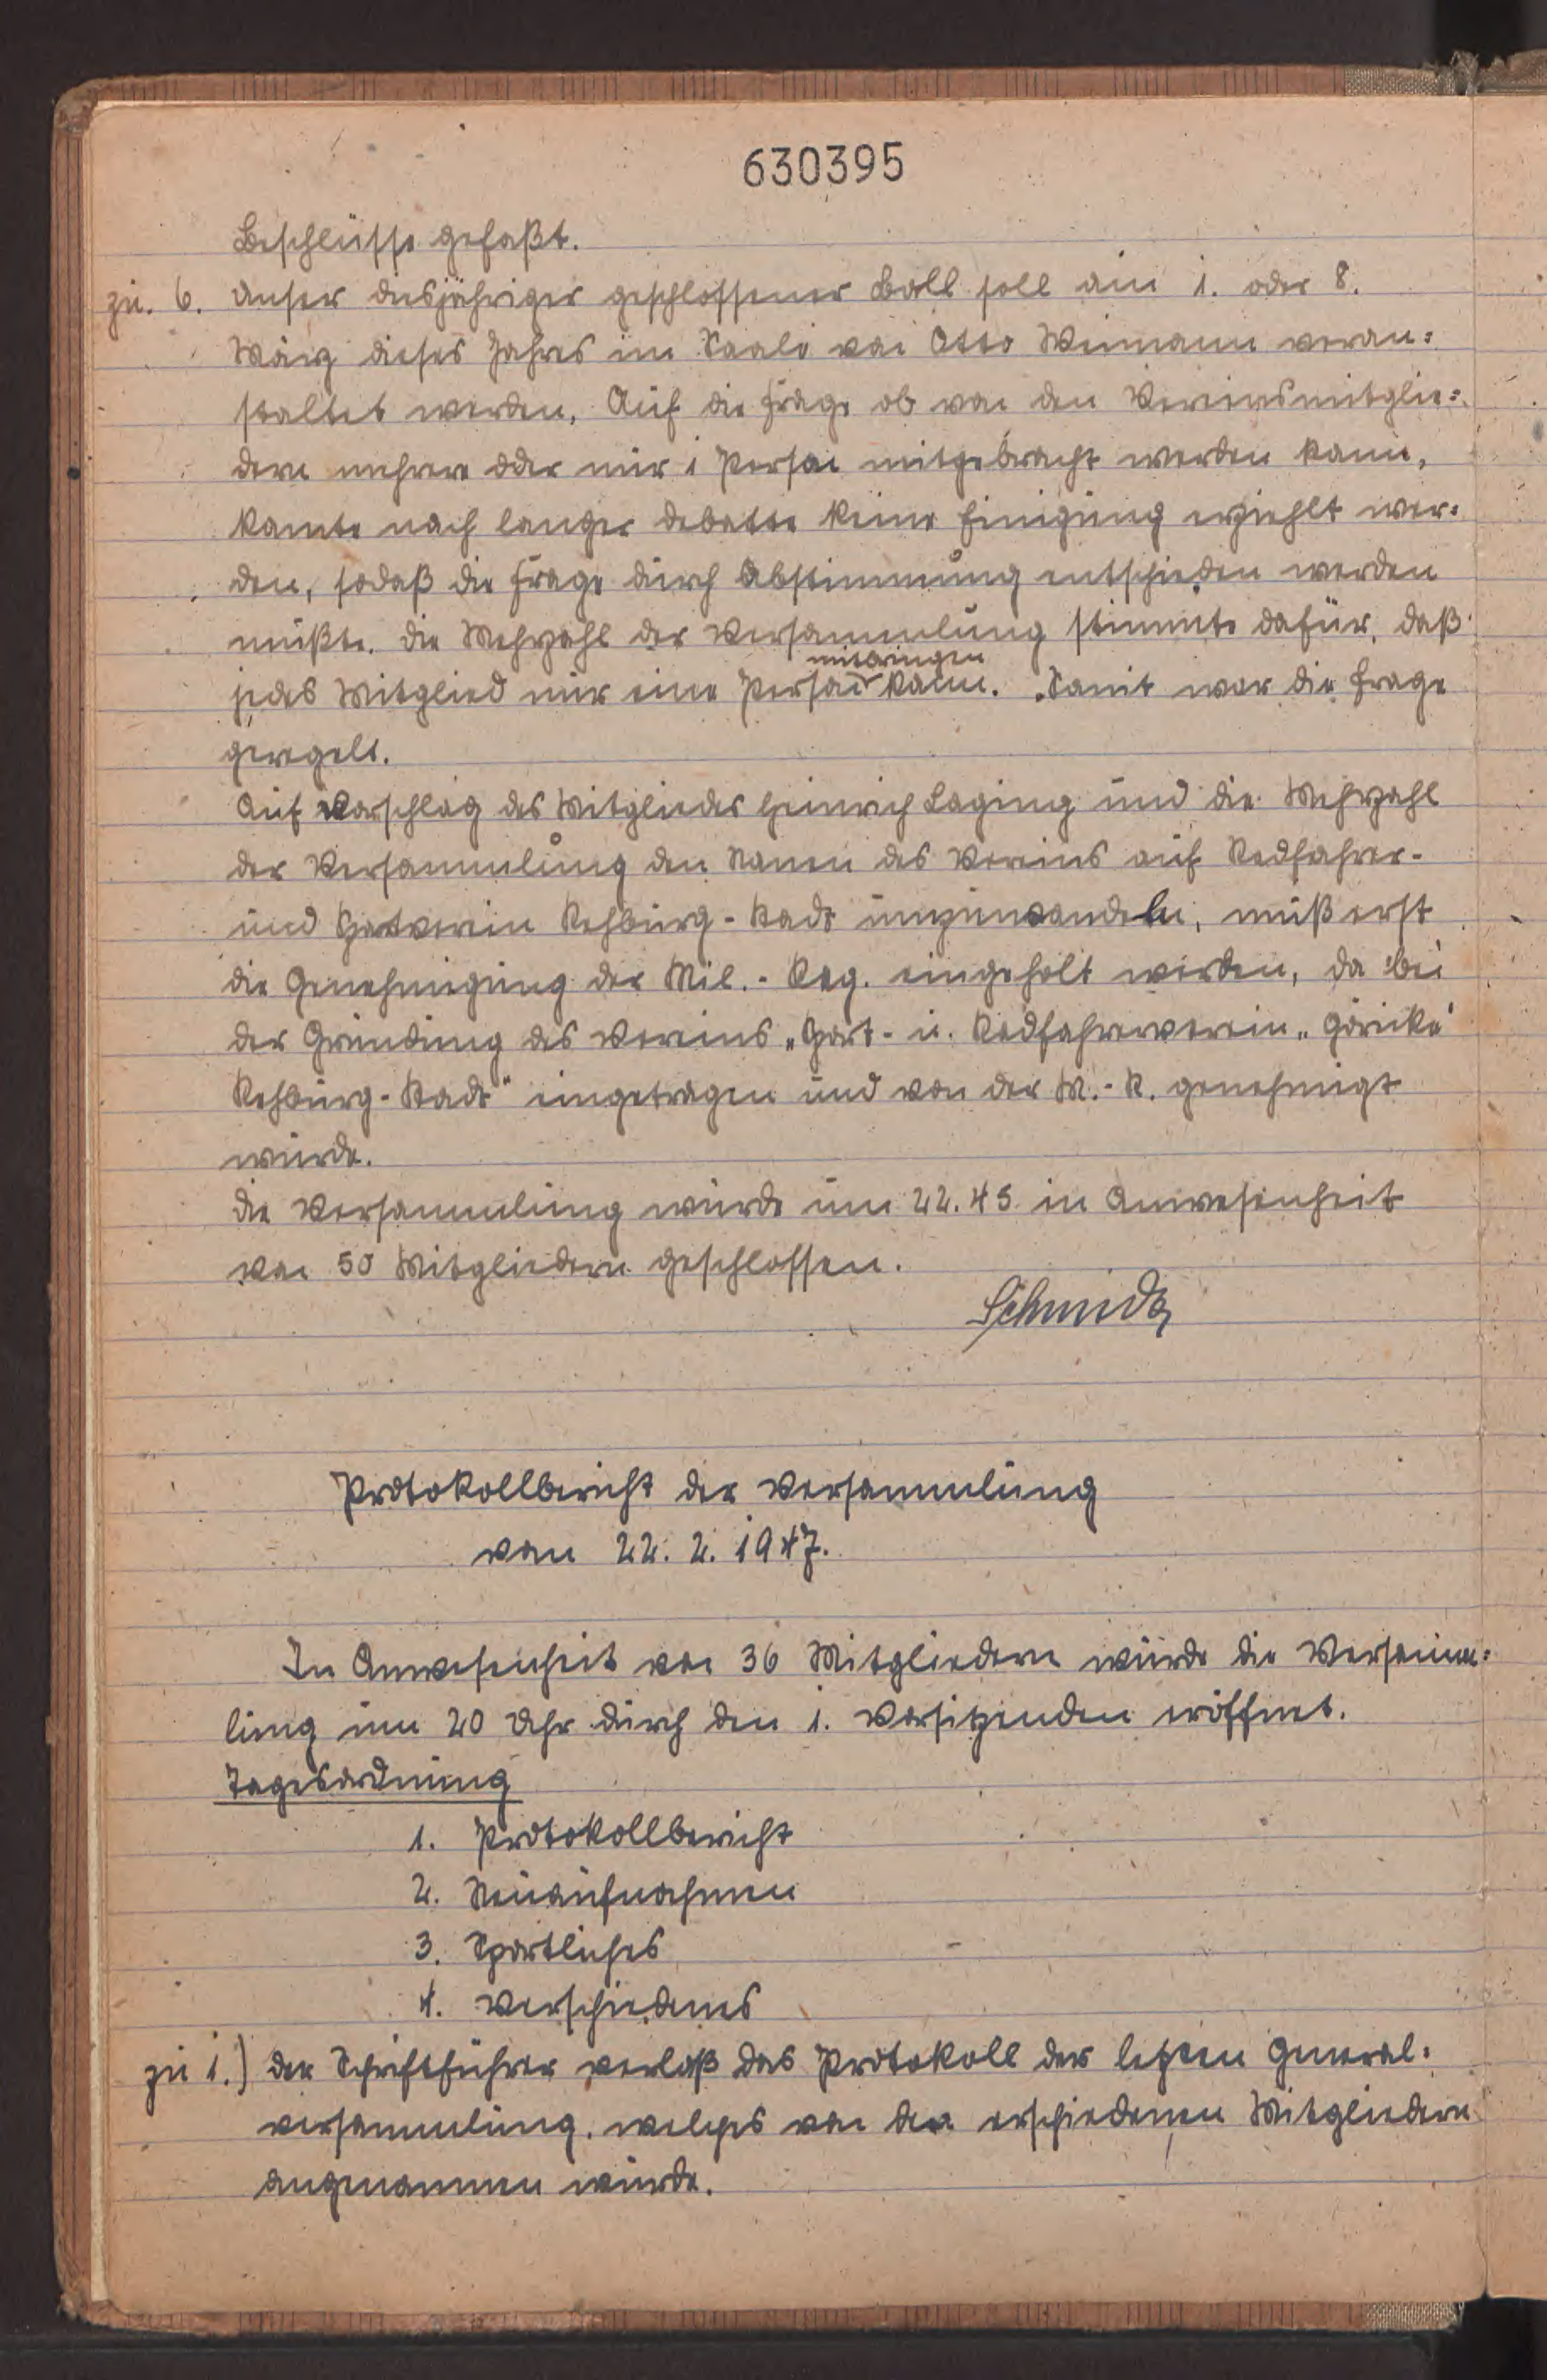 630395
Beschlüsse gefaßt.
zu. 6. Unser diesjähriger geschlossener Ball soll am 1. oder 8.
März dieses Jahres im Saale von Otto Weimann veran=
staltet werden. Auf die Frage ob von den Vereinsmitglie=
dern mehrere oder nur 1 Person mitgebracht werden kann,
konnte nach langer Debatte keine Einigung erziehlt wer=
den, sodaß die Frage durch Abstimmung entschieden werden
mußte. Die Mehrzahl der Versammlung stimmte dafür, daß
mitbringen
jedes Mitglied nur eine Person kann. Somit war die Frage
geregelt.
Auf Vorschlag des Mitgliedes Heinrich Laging und die Mehrzahl
der Versammlung den Namen des Vereins auf Radfahrer-
und Sportverein Rehburg-Stadt umzuwandeln, muß erst
die Genehmigung der Mil.-Reg. eingeholt werden, da bei
der Gründung des Vereins „Sport- u. Radfahrerverein „Göricke"
Rehburg-Stadt" eingetragen und von der M.-R. genehmigt
wurde.
Die Versammlung wurde um 22.45 in Anwesenheit
von 50 Mitgliedern geschlossen.
Protokollbericht der Versammlung
vom 22. 2. 1947.
In Anwesenheit von 36 Mitgliedern wurde die Versamm=
lung um 20 Uhr durch den 1. Vorsitzenden eröffnet.
Tagesordnung
1. Protokollbericht
2. Neuaufnahmen
3. Sportliches
4. Verschiedenes
zu 1.) Der Schriftführer verlaß das Protokoll der letzten General=
versammlung, welches von den erschiedenen Mitgliedern
angenommen wurde.